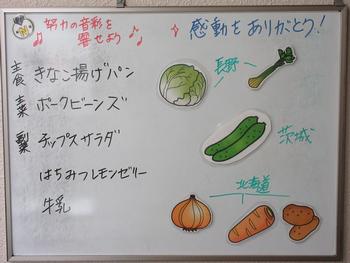 努力の音彩を
響せよう
感動をありがとう!
主食 きなこ揚げパン
主菜 ポークビーンズ
副菜 チップスサラダ
はちみつレモンゼリー
牛乳
長野
茨城
北海道